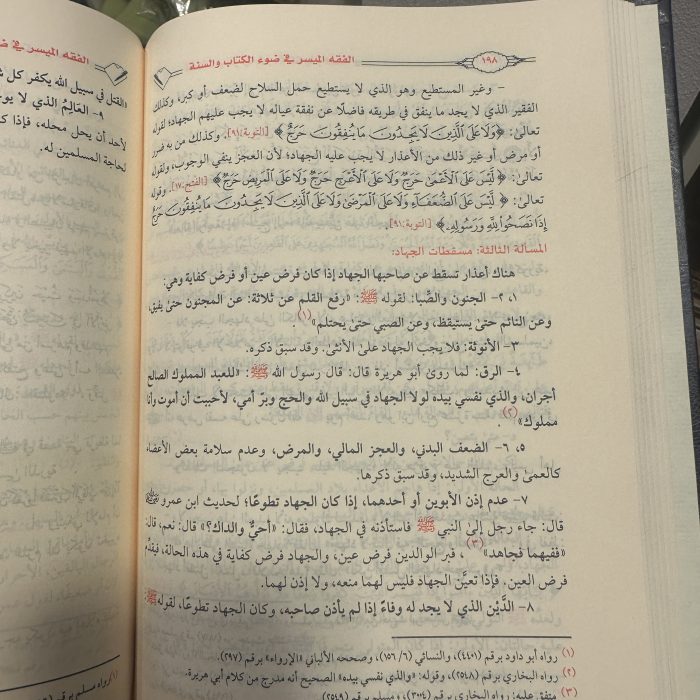 ١٩٨
الفقه الميسر في ضوء الكتاب والسنة
- وغير المستطيع وهو الذي لا يستطيع حمل السلاح لضعف أو كبر، وكذلك
الفقير الذي لا يجد ما ينفق في طريقه فاضلًا عن نفقة عياله لا يجب عليهم الجهاد؛ لقوله
تعالى: ﴿وَلَا عَلَى الَّذِينَ لَا يَجِدُونَ مَا يُنفِقُونَ حَرَجٌ﴾ [التوبة:٩١]. وكذلك من به ضرر
أو مرض أو غير ذلك من الأعذار لا يجب عليه الجهاد؛ لأن العجز ينفي الوجوب، ولقوله
تعالى: ﴿لَّيْسَ عَلَى الْأَعْمَىٰ حَرَجٌ وَلَا عَلَى الْأَعْرَجِ حَرَجٌ وَلَا عَلَى الْمَرِيضِ حَرَجٌ﴾ [الفتح:١٧]. وقوله
تعالى: ﴿لَّيْسَ عَلَى الضُّعَفَاءِ وَلَا عَلَى الْمَرْضَىٰ وَلَا عَلَى الَّذِينَ لَا يَجِدُونَ مَا يُنفِقُونَ حَرَجٌ
إِذَا نَصَحُوا لِلَّهِ وَرَسُولِهِ﴾ [التوبة:٩١].
المسألة الثالثة: مسقطات الجهاد:
هناك أعذار تسقط عن صاحبها الجهاد إذا كان فرض عين أو فرض كفاية وهي:
١، ٢- الجنون والصِّبا: لقوله ﷺ: «رفع القلم عن ثلاثة: عن المجنون حتى يفيق،
وعن النائم حتى يستيقظ، وعن الصبي حتى يحتلم»(١).
٣- الأنوثة: فلا يجب الجهاد على الأنثى. وقد سبق ذكره.
٤- الرق: لما روى أبو هريرة قال: قال رسول الله ﷺ: «للعبد المملوك الصالح
أجران، والذي نفسي بيده لولا الجهاد في سبيل الله والحج وبرّ أمي، لأحببت أن أموت وأنا
مملوك»(٢).
٥، ٦- الضعف البدني، والعجز المالي، والمرض، وعدم سلامة بعض الأعضاء
كالعمى والعرج الشديد، وقد سبق ذكرها.
٧- عدم إذن الأبوين أو أحدهما، إذا كان الجهاد تطوعًا؛ لحديث ابن عمرو
قال: جاء رجل إلى النبي ﷺ فاستأذنه في الجهاد، فقال: «أحيٌّ والداك؟» قال: نعم، قال:
«ففيهما فجاهد»(٣)، فبر الوالدين فرض عين، والجهاد فرض كفاية في هذه الحالة، فيقدَّم
فرض العين. فإذا تعيَّن الجهاد فليس لهما منعه، ولا إذن لهما.
٨- الدَّيْن الذي لا يجد له وفاءً إذا لم يأذن صاحبه، وكان الجهاد تطوعًا، لقوله ﷺ:
(١) رواه أبو داود برقم (٤٤٠١)، والنسائي (٦/ ١٥٦)، وصححه الألباني «الإرواء» برقم (٢٩٧).
(٢) رواه البخاري برقم (٢٥٤٨)، وقوله: «والذي نفسي بيده» الصحيح أنه مدرج من كلام أبي هريرة.
(٣) متفق عليه: رواه البخاري برقم (٣٠٠٤)، ومسلم برقم (٢٥٤٩).
الفقه الميسر في
«القتل في سبيل الله يكفر كل
٩- العَالِمُ الذي لا
لأحد أن يحل محله، فإذا
لحاجة المسلمين له.
(١) رواه مسلم برقم